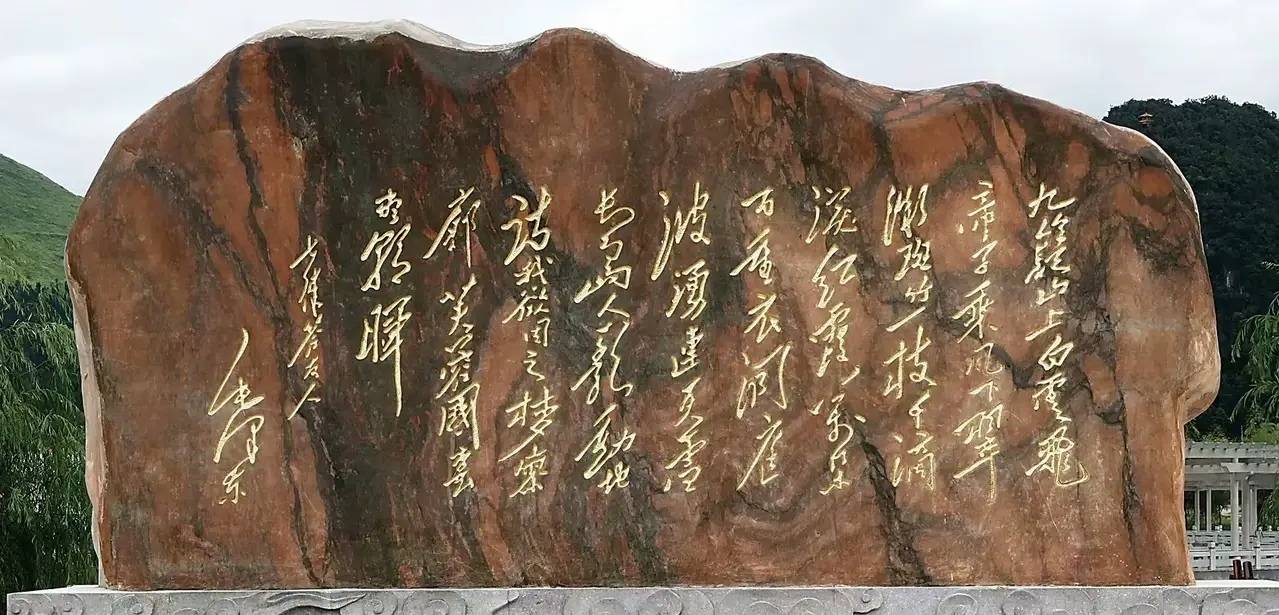 九嶷山上白雲飛
帝子乘风下翠
微斑竹一枝千滴
淚红霞萬朵
百重衣洞庭
波湧連天雪
長島人歌動地
詩我欲因之梦寥
廓芙蓉國裏
盡朝暉
七律答友人
毛泽东